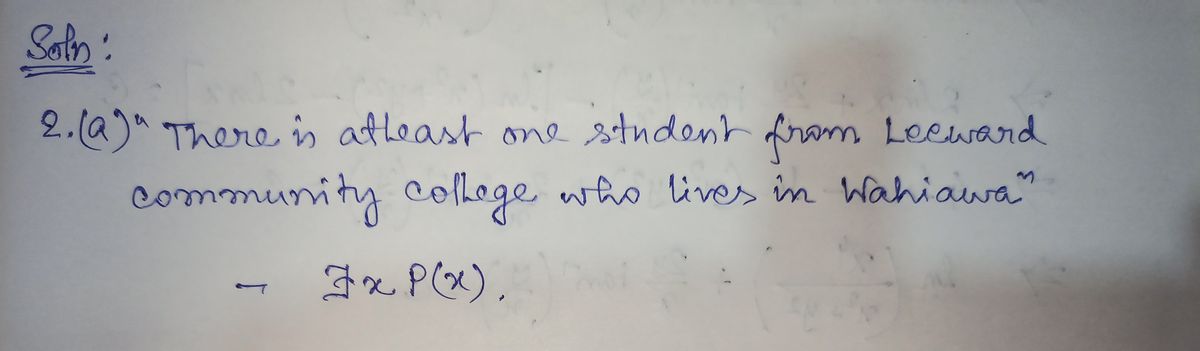 Soln:
2.(a) "There is atleast one student from Leeward
community college who lives in Wahiawa"
- ∃x P(x).